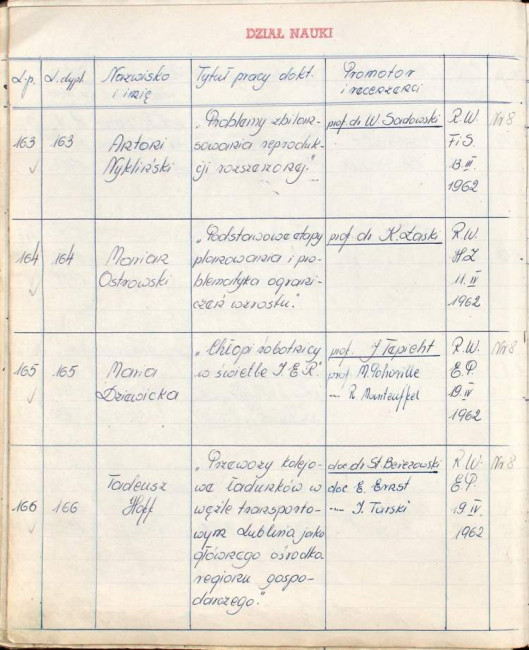 DZIAŁ NAUKI
L.p. L.dypl. Nazwisko i imię Tytuł pracy dokt. Promotor i recenzenci
163 163 Antoni Nykliński „Problemy zbilan-
sowania reproduk-
cji rozszerzonej." prof. dr W. Sadowski R.W. Nr 8
FiS.
13 III
1962
164 164 Marian Ostrowski „Podstawowe etapy
planowania i pro-
blematyka ograni-
czeń wzrostu." prof. dr K. Łaski R.W.
HZ
11. IV
1962
165 165 Maria Dziewicka „Chłopi robotnicy
w świetle I.E.R." prof. J. Tepicht R.W. Nr 8
prof. M. Pohorille E.P.
—„— R. Manteuffel 19 IV
1962
166 166 Tadeusz Hoff „Przewozy kolejo-
we ładunków w
węźle transporto-
wym Lublina jako
głównego ośrodka
regionu gospo-
darczego." doc. dr St. Berezowski R.W. Nr 8
doc. E. Ernst E.P.
—„— I. Tarski 19 IV.
1962